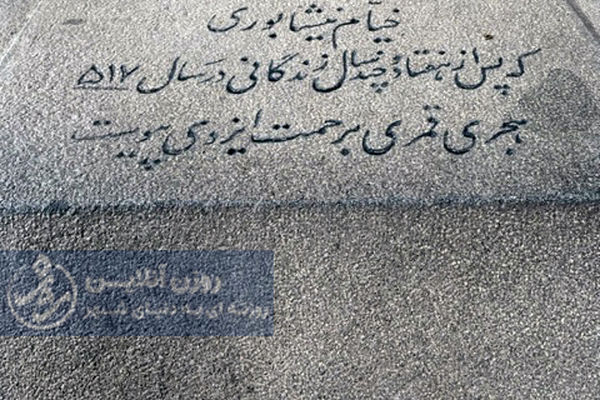 خیام نیشابوری
که پس از هفتاد و چند سال زندگانی در سال ۵۱۷
هجری قمری برحمت ایزدی پیوست
روزن آنلاین
روزنه ای به دنیای